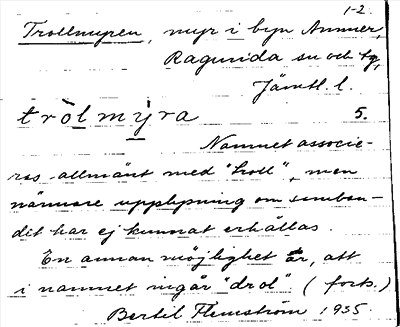 1-2.
Trollmyren, myr i byn Ammer,
Ragunda sn och tg,
Jämtl. l.
tròlmỳra 5.
Namnet associe-
ras allmänt med "troll", men
närmare upplysning om innebör-
det har ej kunnat erhållas.
En annan möjlighet är, att
i namnet ingår "drol" (forts.)
Bertil Flemström 1935.